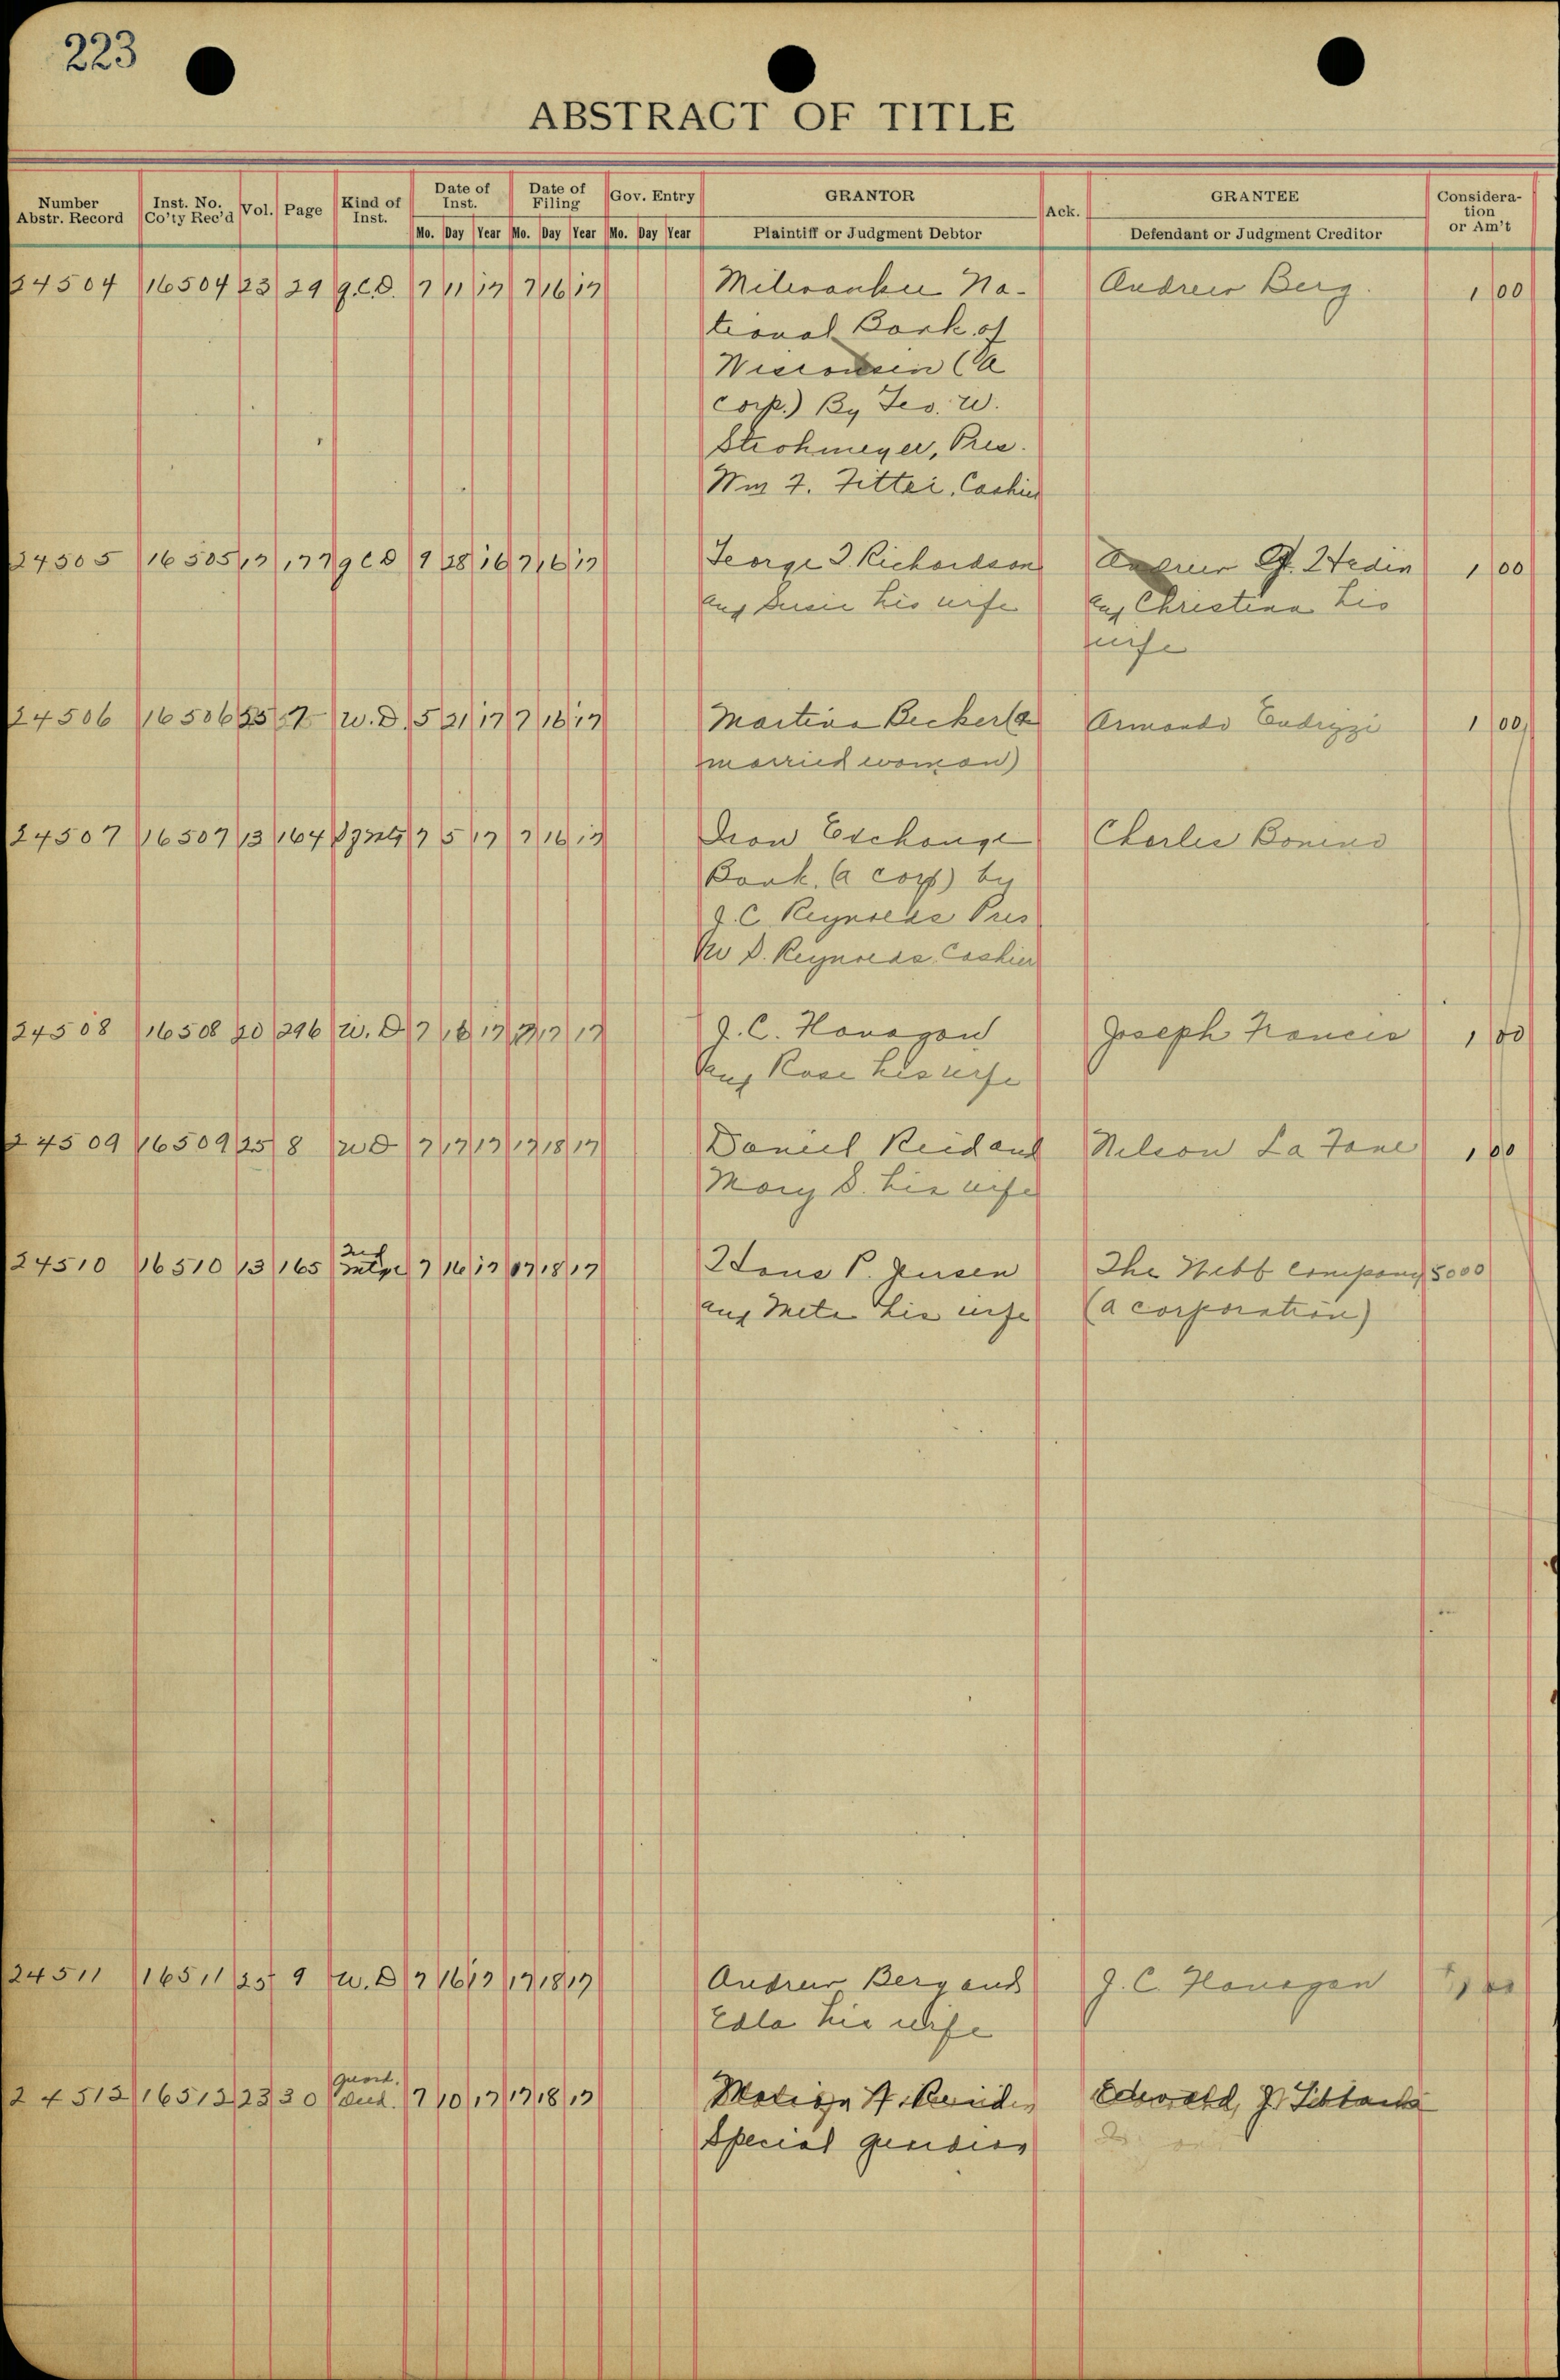 223
ABSTRACT OF TITLE
Number Abstr. Record Inst. No. Co'ty Rec'd Vol. Page Kind of Inst. Date of Inst. Date of Filing Gov. Entry GRANTOR Ack. GRANTEE Consideration or Am't
Mo. Day Year Mo. Day Year Mo. Day Year Plaintiff or Judgment Debtor Defendant or Judgment Creditor
24504 16504 23 29 q.c.D. 7 11 17 7 16 17 Milwaukee Na- Andrew Berg. 1 00
tional Bank of
Wisconsin (a
corp.) By Geo. W.
Strohmeyer, Pres.
Wm F. Fitter, Cashier
24505 16505 17 177 q c D 9 28 16 7 16 17 George I Richardson Andrew G. Hedin 1 00
and Susie his wife and Christina his
wife
24506 16506 25 7 W.D. 5 21 17 7 16 17 Martina Becker (a Armando Endrizzi 1 00
married woman)
24507 16507 13 164 7 5 17 7 16 17 Iron Exchange Charles Bonino
Bank, (a corp) by
G. C Reynolds Pres
W D. Reynolds Cashier
24508 16508 20 296 W. D 7 16 17 7 17 17 J. C. Flanagan Joseph Francis 1 00
and Rose his wife
24509 16509 25 8 W D 7 17 17 7 18 17 Daniel Reid and Nelson La Fave 1 00
Mary S. his wife
24510 16510 13 165 2nd mtge 7 16 17 7 18 17 Hans P. Jensen The Webb Company 5000
and Meta his wife (a corporation)
24511 16511 25 9 W. D 7 16 17 7 18 17 Andrew Berg and J. C. Flanagan 1 00
Edla his wife
24512 16512 23 30 guard. Deed. 7 10 17 7 18 17 A. Edward J.
Special guardian